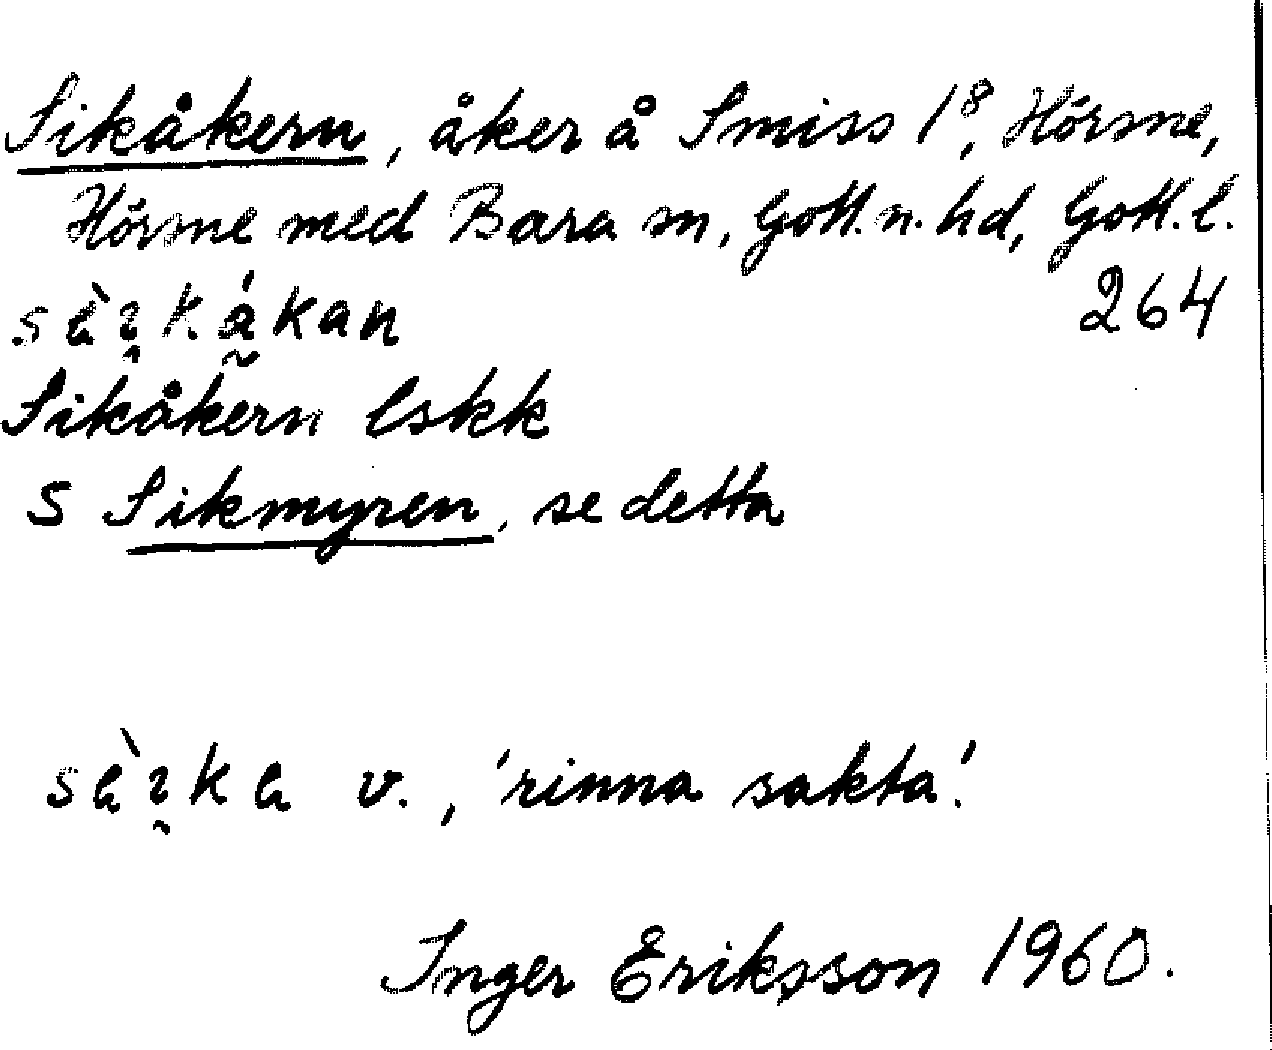 Sikåkern, åker å Smiss 1⁸, Hörsne,
Hörsne med Bara sn, Gotl. n. hd, Gotl. l.
264
Sikåkern lskk
S Sikmyren, se detta
v., 'rinna sakta'.
Inger Eriksson 1960.